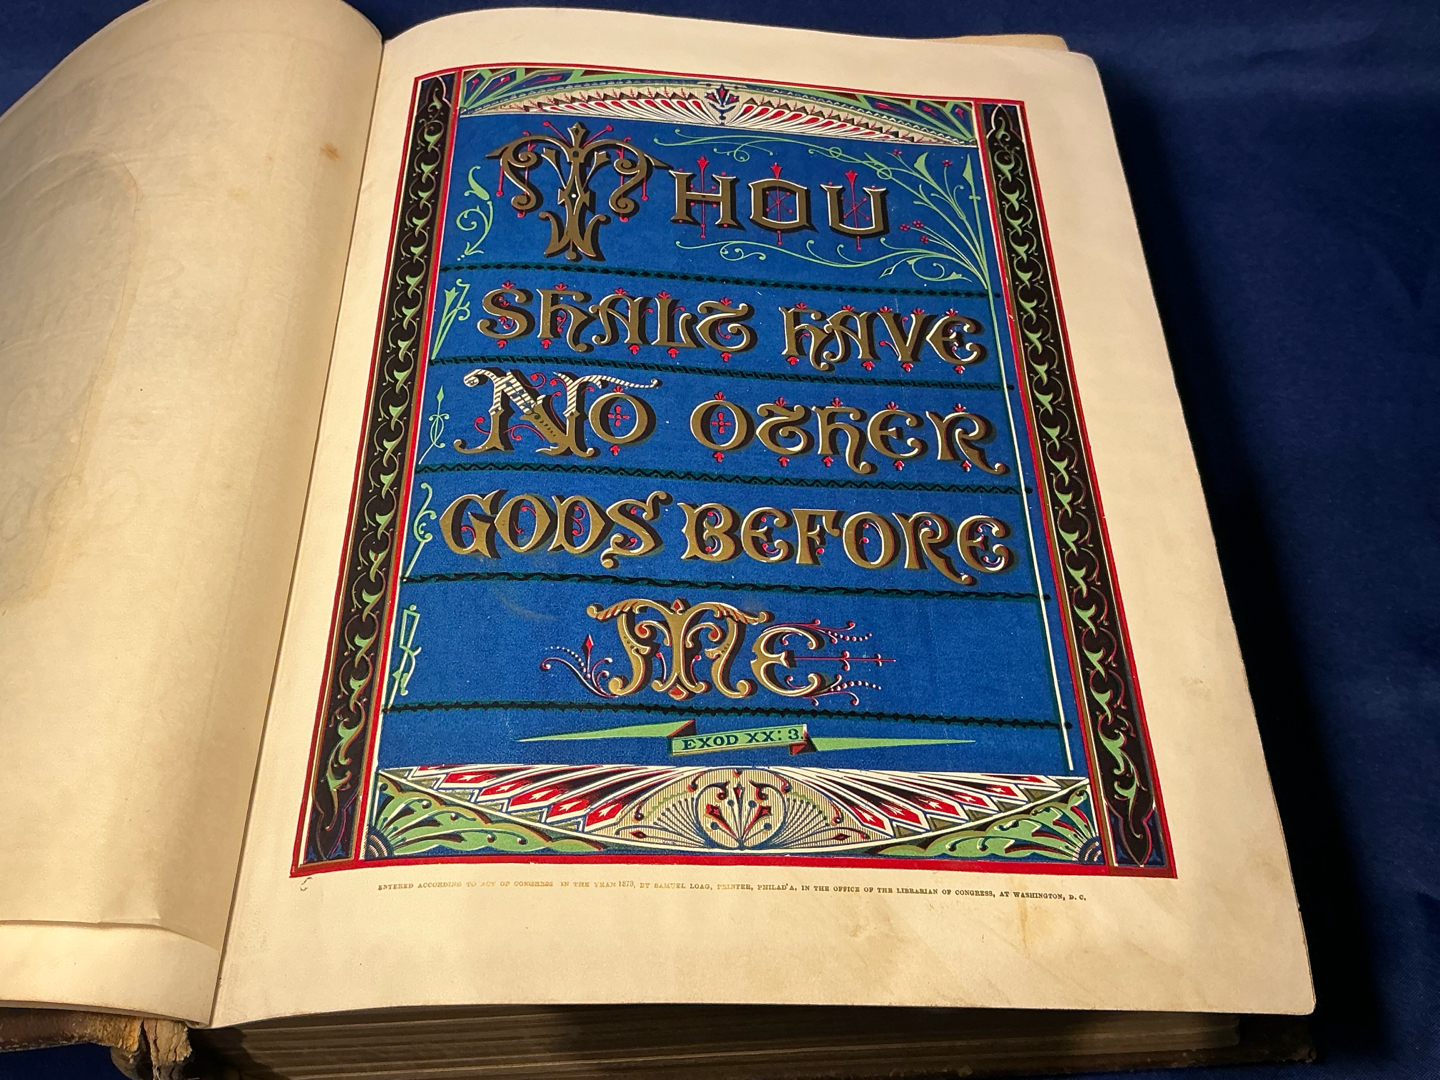 THOU
SHALT HAVE
NO OTHER
GODS BEFORE
ME
EXOD XX: 3.
ENTERED ACCORDING TO ACT OF CONGRESS IN THE YEAR 1873, BY SAMUEL LOAG, PRINTER, PHILAD'A, IN THE OFFICE OF THE LIBRARIAN OF CONGRESS, AT WASHINGTON, D. C.